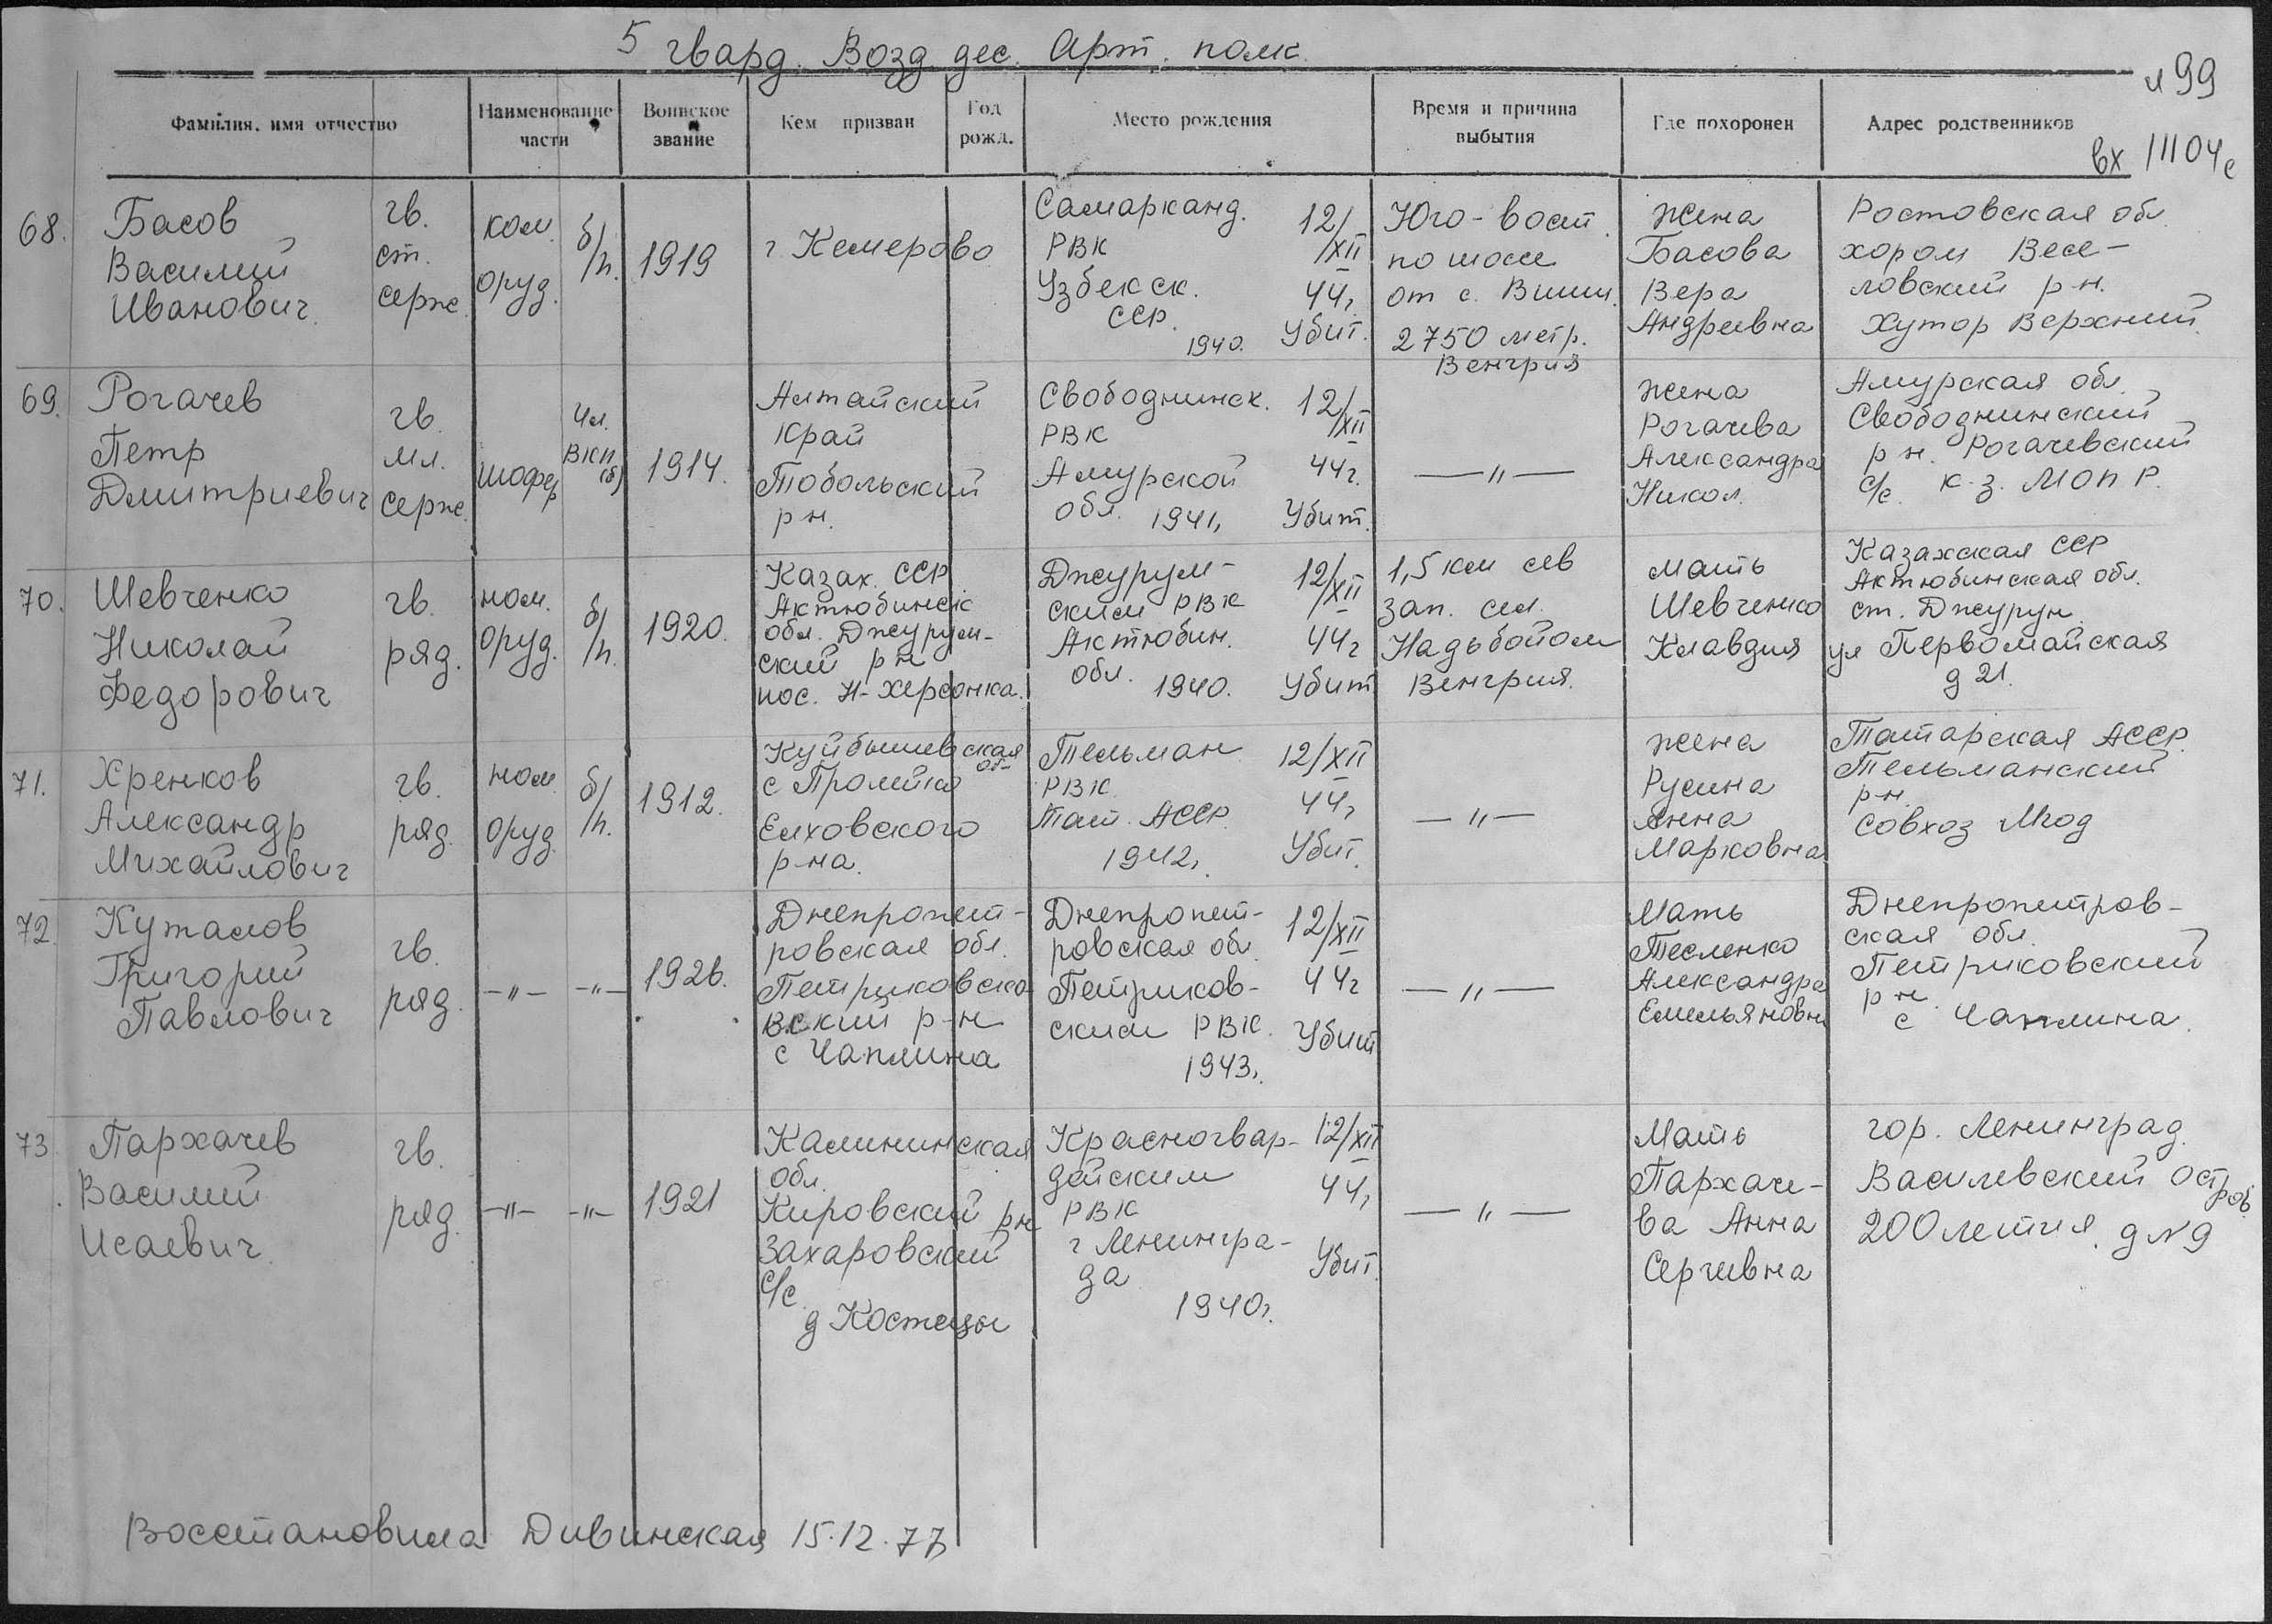 5 гвард. Возд. дес. Арт. полк.
л 99
Фамилия, имя отчество
Наименование части
Воинское звание
Кем призван
Год рожд.
Место рождения
Время и причина выбытия
Где похоронен
Адрес родственников
вх 11104с
68.
Басов
Василий
Иванович.
гв.
ст.
серж.
ком.
оруд.
б/п.
1919
г. Кемерово
Самарканд.
РВК
Узбекск.
ССР.
1940.
12/XII
44г
Убит.
Юго-вост.
по шоссе
от с.
2750 метр.
Венгрия
Жена
Басова
Вера
Андреевна
Ростовская обл
Весе-
ловский р-н.
Хутор Верхний.
69.
Рогачев
Петр
Дмитриевич
гв.
мл.
серж.
шофер
Чл.
ВКП
(б)
1914.
Алтайский
Край
Тобольский
р-н.
Свободнинск.
РВК
Амурской
обл. 1941г
12/XII
44г.
Убит.
—〃—
Жена
Рогачева
Александра
Никол.
Амурская обл.
Свободнинский
р-н. Рогачевский
с/с. к-з. МОПР.
70.
Шевченко
Николай
Федорович
гв.
ряд.
ном.
оруд.
б/п.
1920.
Казах. ССР
Актюбинск
обл. Джурум-
ский р-н
пос. Н-Херсонка.
Джурум-
ским РВК
Актюбин.
обл. 1940.
12/XII
44г
Убит
1,5 км сев
зап. сел.
Надьбойом
Венгрия.
мать
Шевченко
Клавдия
Казахская ССР
Актюбинская обл.
ст. Джурун.
ул Первомайская
д 21.
71.
Хренков
Александр
Михайлович
гв.
ряд.
ном.
оруд.
б/п.
1912.
Куйбышевская
обл
с Пролейка
Елховского
р-на.
Тельман
РВК
Тат. АССР
1942г.
12/XII
44г
Убит.
—〃—
жена
Русина
Анна
Марковна
Татарская АССР.
Тельманский
р-н.
совхоз Мюд
72.
Куталов
Григорий
Павлович
гв.
ряд.
—〃—
—〃—
1926.
Днепропет-
ровская обл.
Петриковско
вский р-н
с Чаплина
Днепропет-
ровская обл
Петриков-
ским РВК.
1943г.
12/XII
44г
Убит
—〃—
Мать
Тесленко
Александра
Емельяновна
Днепропетров-
ская обл.
Петриковский
р-н.
с Чаплина.
73
Пархачев
Василий
Исаевич.
гв.
ряд.
—〃—
—〃—
1921
Калининская
обл.
Кировский рн
Захаровский
с/с.
д Костецы
Красногвар-
дейским
РВК
г Ленингра-
да
1940г.
12/XII
44г
Убит.
—〃—
Мать
Пархаче-
ва Анна
Сергеевна
гор. Ленинград.
Василевский остров.
200 летия. д № 9
Восстановила Дивинская 15.12.77